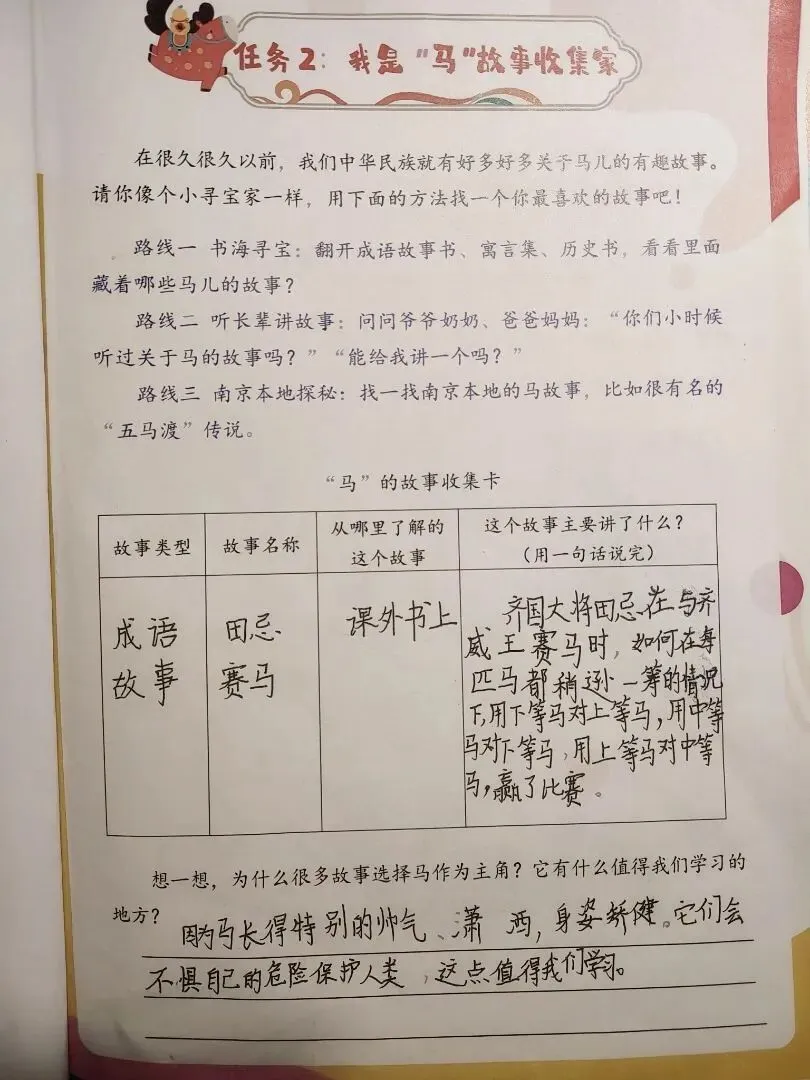 任务2：我是“马”故事收集家
在很久很久以前，我们中华民族就有好多好多关于马儿的有趣故事。
请你像个小寻宝家一样，用下面的方法找一个你最喜欢的故事吧！
路线一 书海寻宝：翻开成语故事书、寓言集、历史书，看看里面
藏着哪些马儿的故事？
路线二 听长辈讲故事：问问爷爷奶奶、爸爸妈妈：“你们小时候
听过关于马的故事吗？”“能给我讲一个吗？”
路线三 南京本地探秘：找一找南京本地的马故事，比如很有名的
“五马渡”传说。
“马”的故事收集卡
故事类型
故事名称
从哪里了解的
这个故事
这个故事主要讲了什么？
（用一句话说完）
成语
故事
田忌
赛马
课外书上
齐国大将田忌在与齐
威王赛马时，如何在每
匹马都稍逊一筹的情况
下，用下等马对上等马，用中等
马对下等马，用上等马对中等
马，赢了比赛。
想一想，为什么很多故事选择马作为主角？它有什么值得我们学习的
地方？
因为马长得特别的帅气、潇洒，身姿矫健。它们会
不惧自己的危险保护人类，这点值得我们学习。